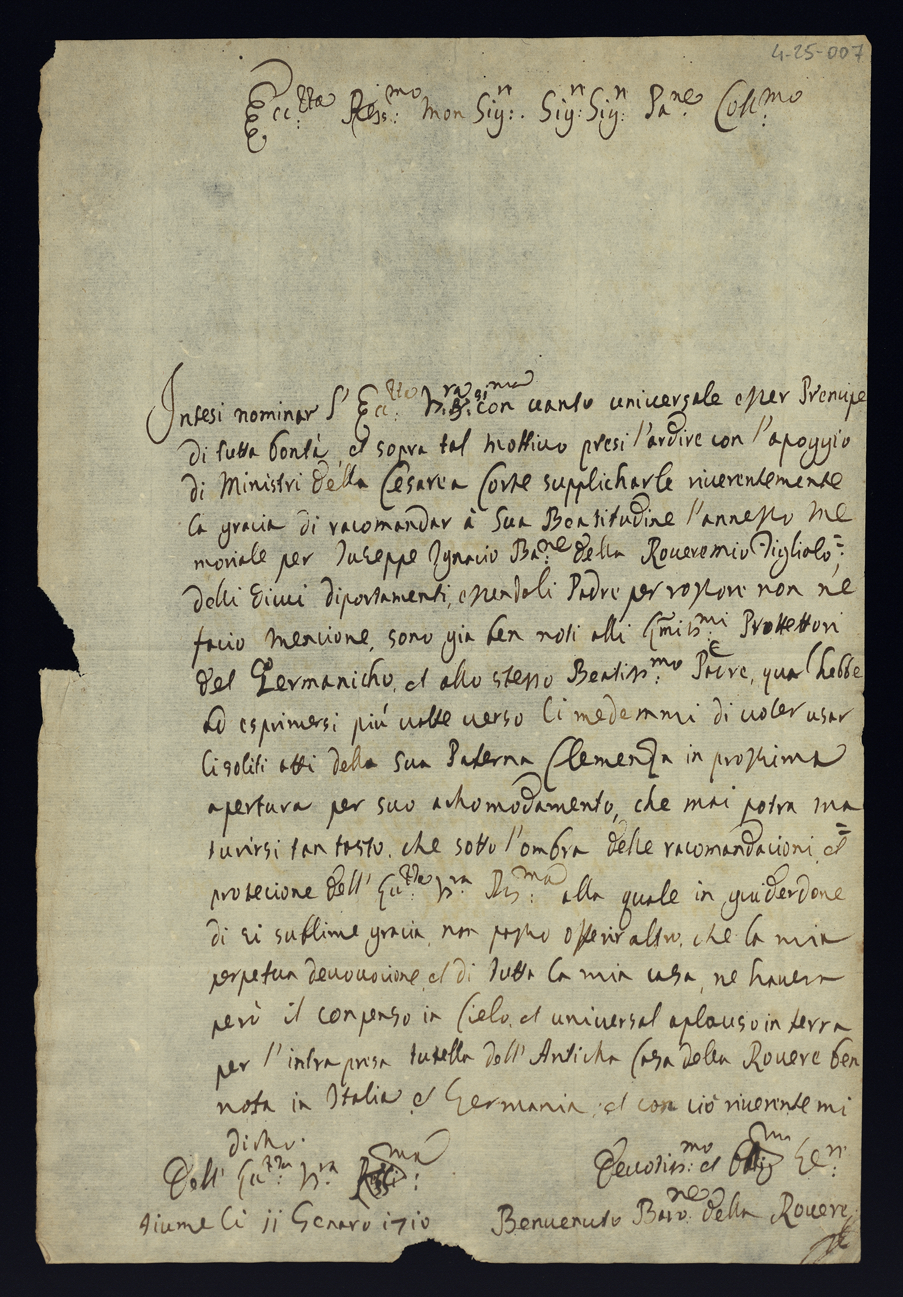 4-25-007
Ecc:tta Rss:mo Mon Sig:n Sig: Sig:n Pa:ne Coll:mo
Intesi nominar l' Ecc:tta V:ra con uanto uniuersale esser Prencipe
di tutta bontà, et sopra tal mottiuo presi l'ardire con l'apoggio
di Ministri della Cesarea Corte supplicharle riuerentemente
la gracia di racomandar à Sua Beatitudine l'annesso me
moriale per Iuseppe Ignacio Ba:ne della Rouere mio Figliolo=;
delli cuui diportamenti, essendoli Padre per rossore non né
facio mencione, sono gia ben noti alli Emin:mi Prottettori
del Germanicho, et allo stesso Beatiss:mo Padre, qual hebbe
ad esprimersi piú uolte uerso li medemmi di uoler usar
li soliti atti della Sua Paterna Clemenza in prossima
apertura per suo achomodamento, che mai potra ma
turirsi tan tosto, che sotto l'ombra delle racomandacioni, et=
protecione dell' Ecc:tta V:ra Rss:ma alla quale in guiderdone
di si sublime gracia, non posso offerir altro, che la mia
perpetua deuocione, et di tutta la mia casa, ne hauera
però il conpenso in Cielo, et uniuersal aplauso in terra
per l'intrapresa tutella dell' Anticha Casa della Rouere ben
nota in Italia et Germania, et con ciò riuerente mi
dicho.
Dell' Ecc:tta V:ra :ma
Deuotiss:mo et Oblig:mo Se:r
Fiume li 11 Genaro 1710
Benuenuto Baro:ne della Rouere